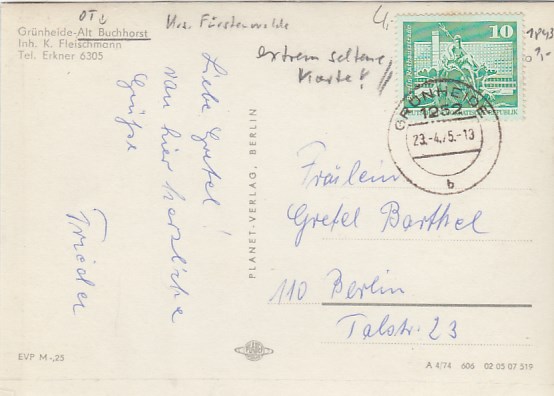 OT
Krs. Fürstenwalde
Grünheide-Alt Buchhorst
Inh. K. Fleischmann
Tel. Erkner 6305
extrem seltene
Karte!
10
GRÜNHEIDE
1252
23.-4.75.-13
b
Liebe Gretel!
von hier herzliche
Grüße
Frieder
PLANET-VERLAG, BERLIN
Fräulein
Gretel Barthel
110 Berlin
Talstr. 23
EVP M -,25
A 4/74 606 02 05 07 519